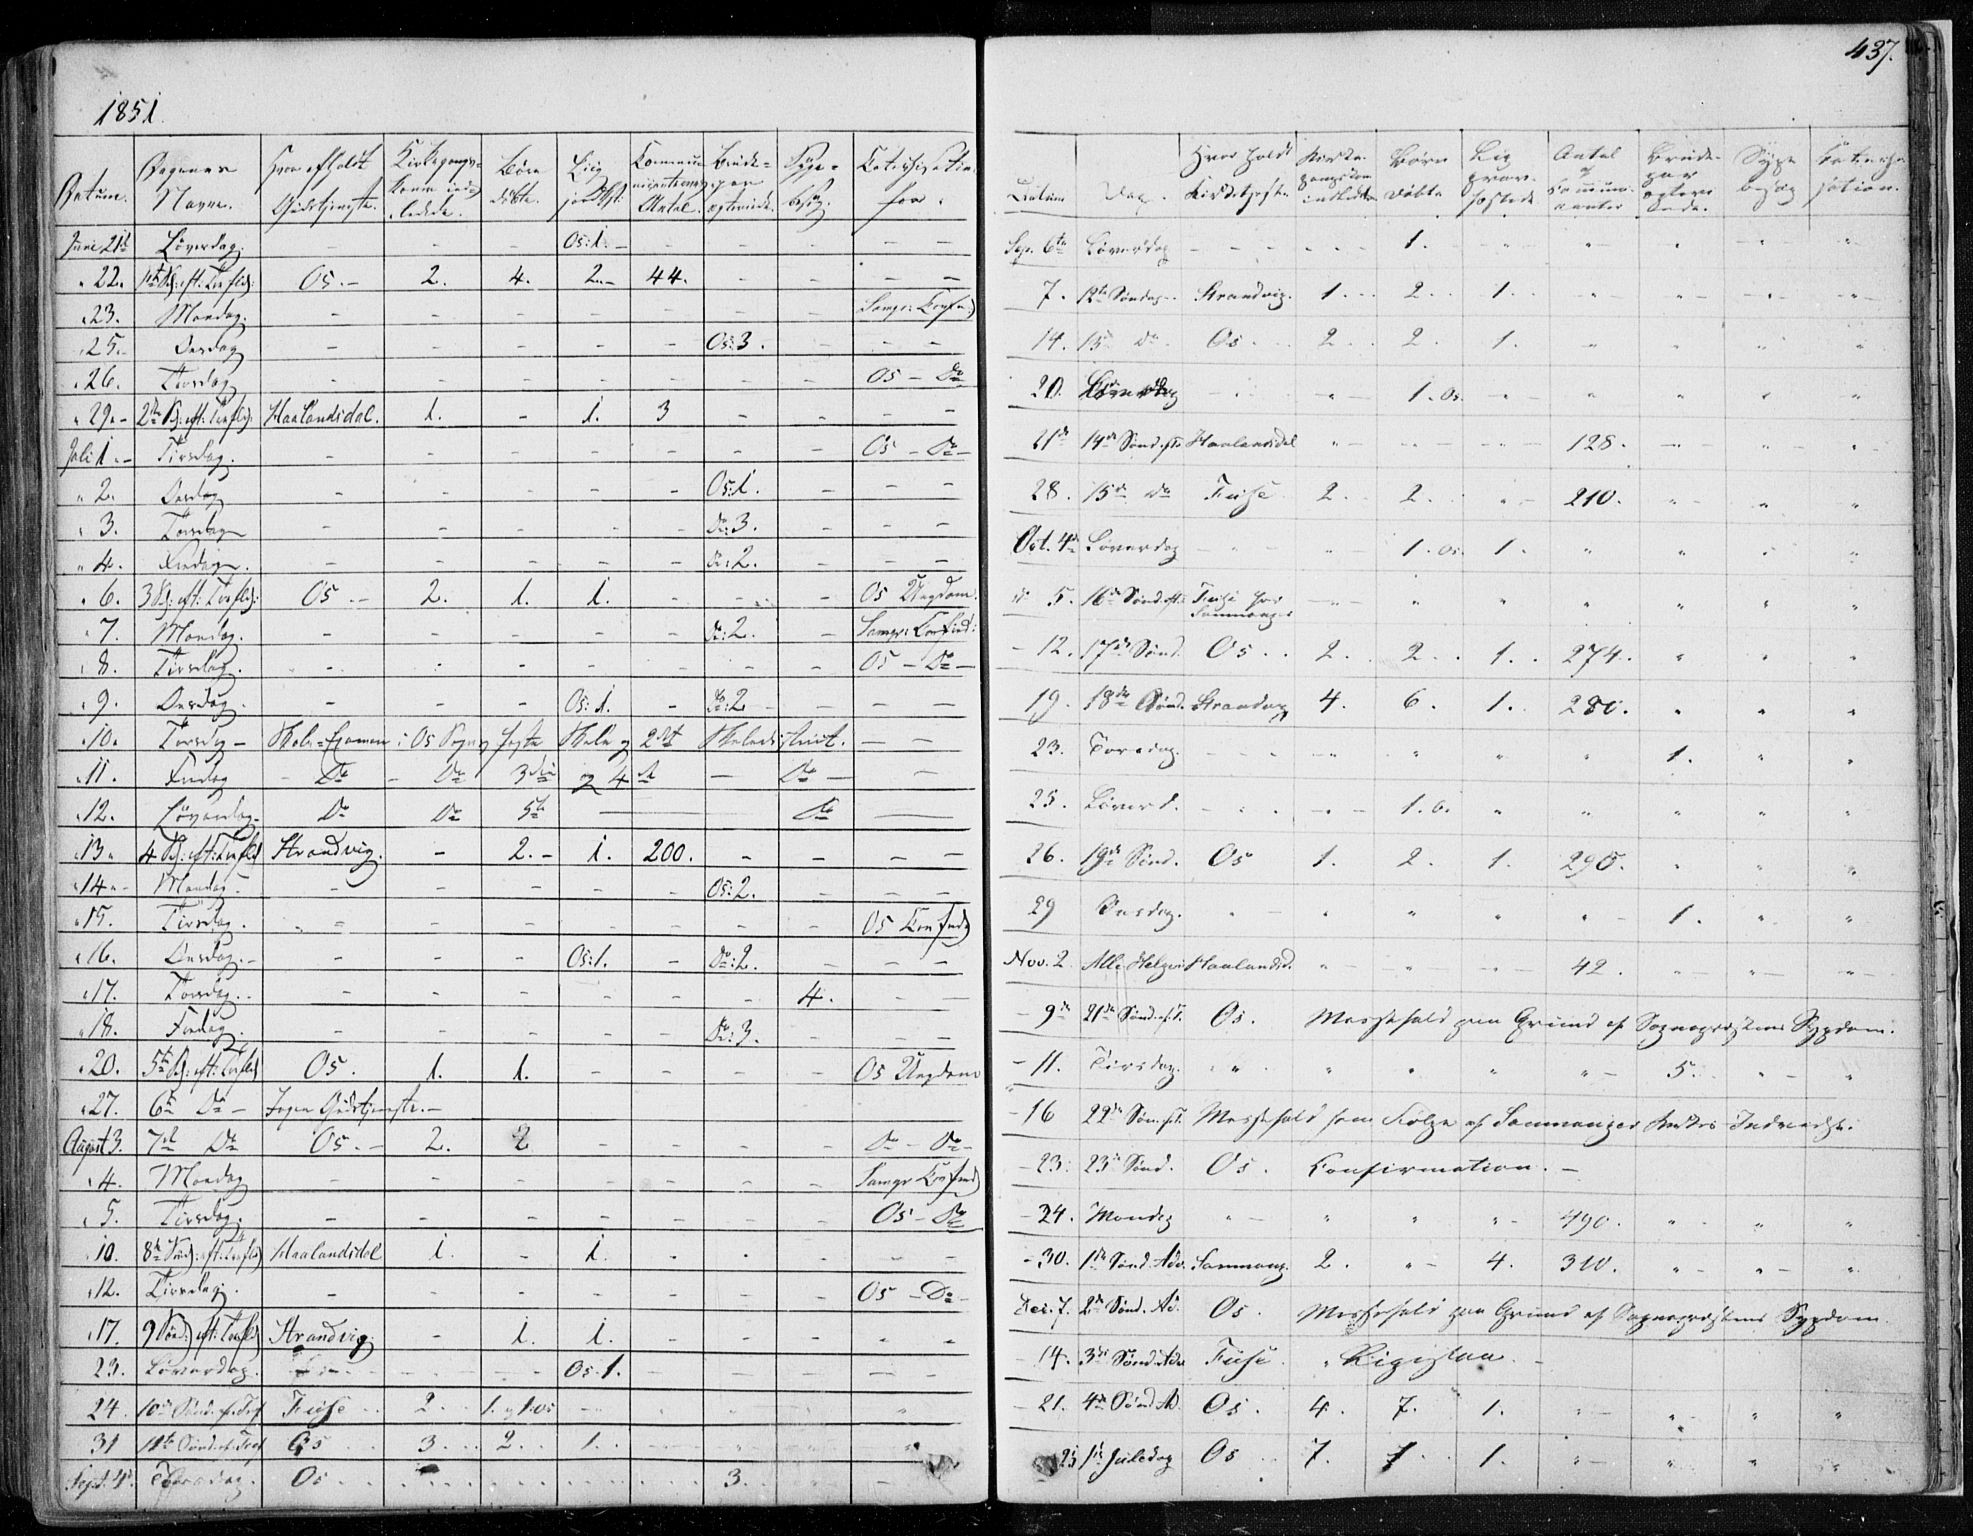 437.
1851.
Datum. Dagenes Navne. Hvor afholdt Gudstjeneste. Kirkegangs-koner indledede. Børn døbte. Liig jordf: Antal. Brude-par egteviede. Syge-besøg. Catechisation for.
Juni 21de Løverdag. - - - Os: 1. - - - - -
" 22. 1ste S: eft: Trefold: Os. - 2. 4. 2. - 44. - - - -
" 23. Mandag. - - - - - - - Samgr: Confirm:
" 25. - Onsdag - - - - - Os: 3. - - -
" 26. Torsdag - - - - - - - Os - Do
" 29. - 2den S: eft: Trefold: Haalandsdal. 1. - 1. 3 - - - -
Juli 1. - Tirsdag. - - - - - - - Os - Do -
" 2. Onsdag - - - - - Os: 1. - - -
" 3. Torsdag - - - - - Do: 3. - - -
" 4. Fredag. - - - - - Do: 2. - - -
" 6. 3 S: eft: Trefold: Os - 2. 1. 1. - - - Os Ungdom.
" 7. Mandag. - - - - - Do: 2. - Samgr: Confirm:
" 8. Tirsdag. - - - - - - - Os - Do -
" 9. Onsdag. - - - Os: 1. - Do: 2 - - -
" 10. Torsdag - Skole-Examen i Os Sogns første Skole og 2det Skoledistrict. - -
" 11. Fredag - Do - Do 3die og 4de - Do - -
" 12. Løverdag - Do Do 5te - Do -
" 13. 4 S: eft: Trefold Strandvig. - 2. - 1. 200. - - - -
" 14. - Mandag - - - - - - Os: 2. - - -
" 15. Tirsdag. - - - - - - - Os Confirm
" 16. Onsdag. - - - - Os: 1. - Do: 2. - - -
" 17. Torsdag. - - - - - - - 4. - -
" 18. Fredag. - - - - - Do: 3. - - -
" 20. 5te S: eft: Trefold Os. 1. 1. - - - - Os Ungdom
" 27. 6te Do - Ingen Gudstjeneste. -
August 3. 7de Do Os. - 2. 2 - - - - Do - Do -
" 4. Mandag - - - - - - - Samgr Confirm
" 5. Tirsdag. - - - - - - - Os - Do
" 10. 8de Sønd: eft: Trefold Haalandsdal 1. - 1. - - - - -
" 12. Tirsdag. - - - - - - - Os - Do -
" 17. 9 Sønd: eft: Trefold Strandvig. - 1. 1. - - - - -
23. Løverdag. - - - Os. 1. - - - - -
24. 10de Sønd. ef. Tref Fuse 2. 1. og 1. Os - - - - "
31 11te Sønd. ef. Tref Os 3. 2. 1. - - - - "
Sept. 4de Torsdag. Os . . . . . 3. . .
Datum Dag. Hvor holdt Kirketjeneste. Kirke-gangskon indledte Børn døbte Lig jordfæstede Antal af Communicanter Brude-par egteviede. Syge besøg Catechisation.
Sep. 6te Løverdag - - - 1. " " " - "
7. 12te Søndag Strandvig. 1. 2. 1. - - - -
14. 13de Do. Os 2. 2. 1. " " " "
20. Løverdag - " 1. Os. - " " " "
21de 14de Sønd. eft. Haalandsdal " - - 128. - " "
28. 15de Do Fuse 2. 2. " 210. " " "
Oct. 4de Løverdag - " 1. Os. 1. " " " "
" 5. 16de Sønd. eft. Fuse for Sammanger - " " " " " "
- 12. 17de Sønd. Os 2. 2. 1. 274. " " "
19. 18de Sønd. Strandvig 4. 6. 1. 280. " " "
23. Torsdag. - - " " " 1. " "
25. Løverd. - - 1. O. " " " " "
26. 19de Sønd. Os 1. 2. 1. 295. " " "
29 Onsdag. " " " " " 1. " "
Nov. 2 Alle Helgen Haalandsd. " " " 42. " " "
- 9de 21de Sønd. ef. T. Os. Messefald paa Grund af Sognepræstens Sygdom.
- 11. Tirsdag. " " " " " 5. " "
- 16 22de Søn. ef. T. Messefald som Følge af Sammanger Kirkes Indvielse.
- 23. 23de Sønd. Os. Confirmation. -
- 24. Mandag " " " " 490. " " "
- 30. 1ste Sønd. Adv. Sammang. 2. " 4. 310. " " "
Dec. 7. 2den Sønd. Ad. Os. Messefald paa Grund af Sognepræstens Sygdom.
- 14. 3die Sønd. Adv. Fuse. " Ligesaa. -
- 21. 4de Sønd. Ad. Os. 4. 7. 1. " " " "
25 1ste Juledag Os 7. 1. 1. " " " "